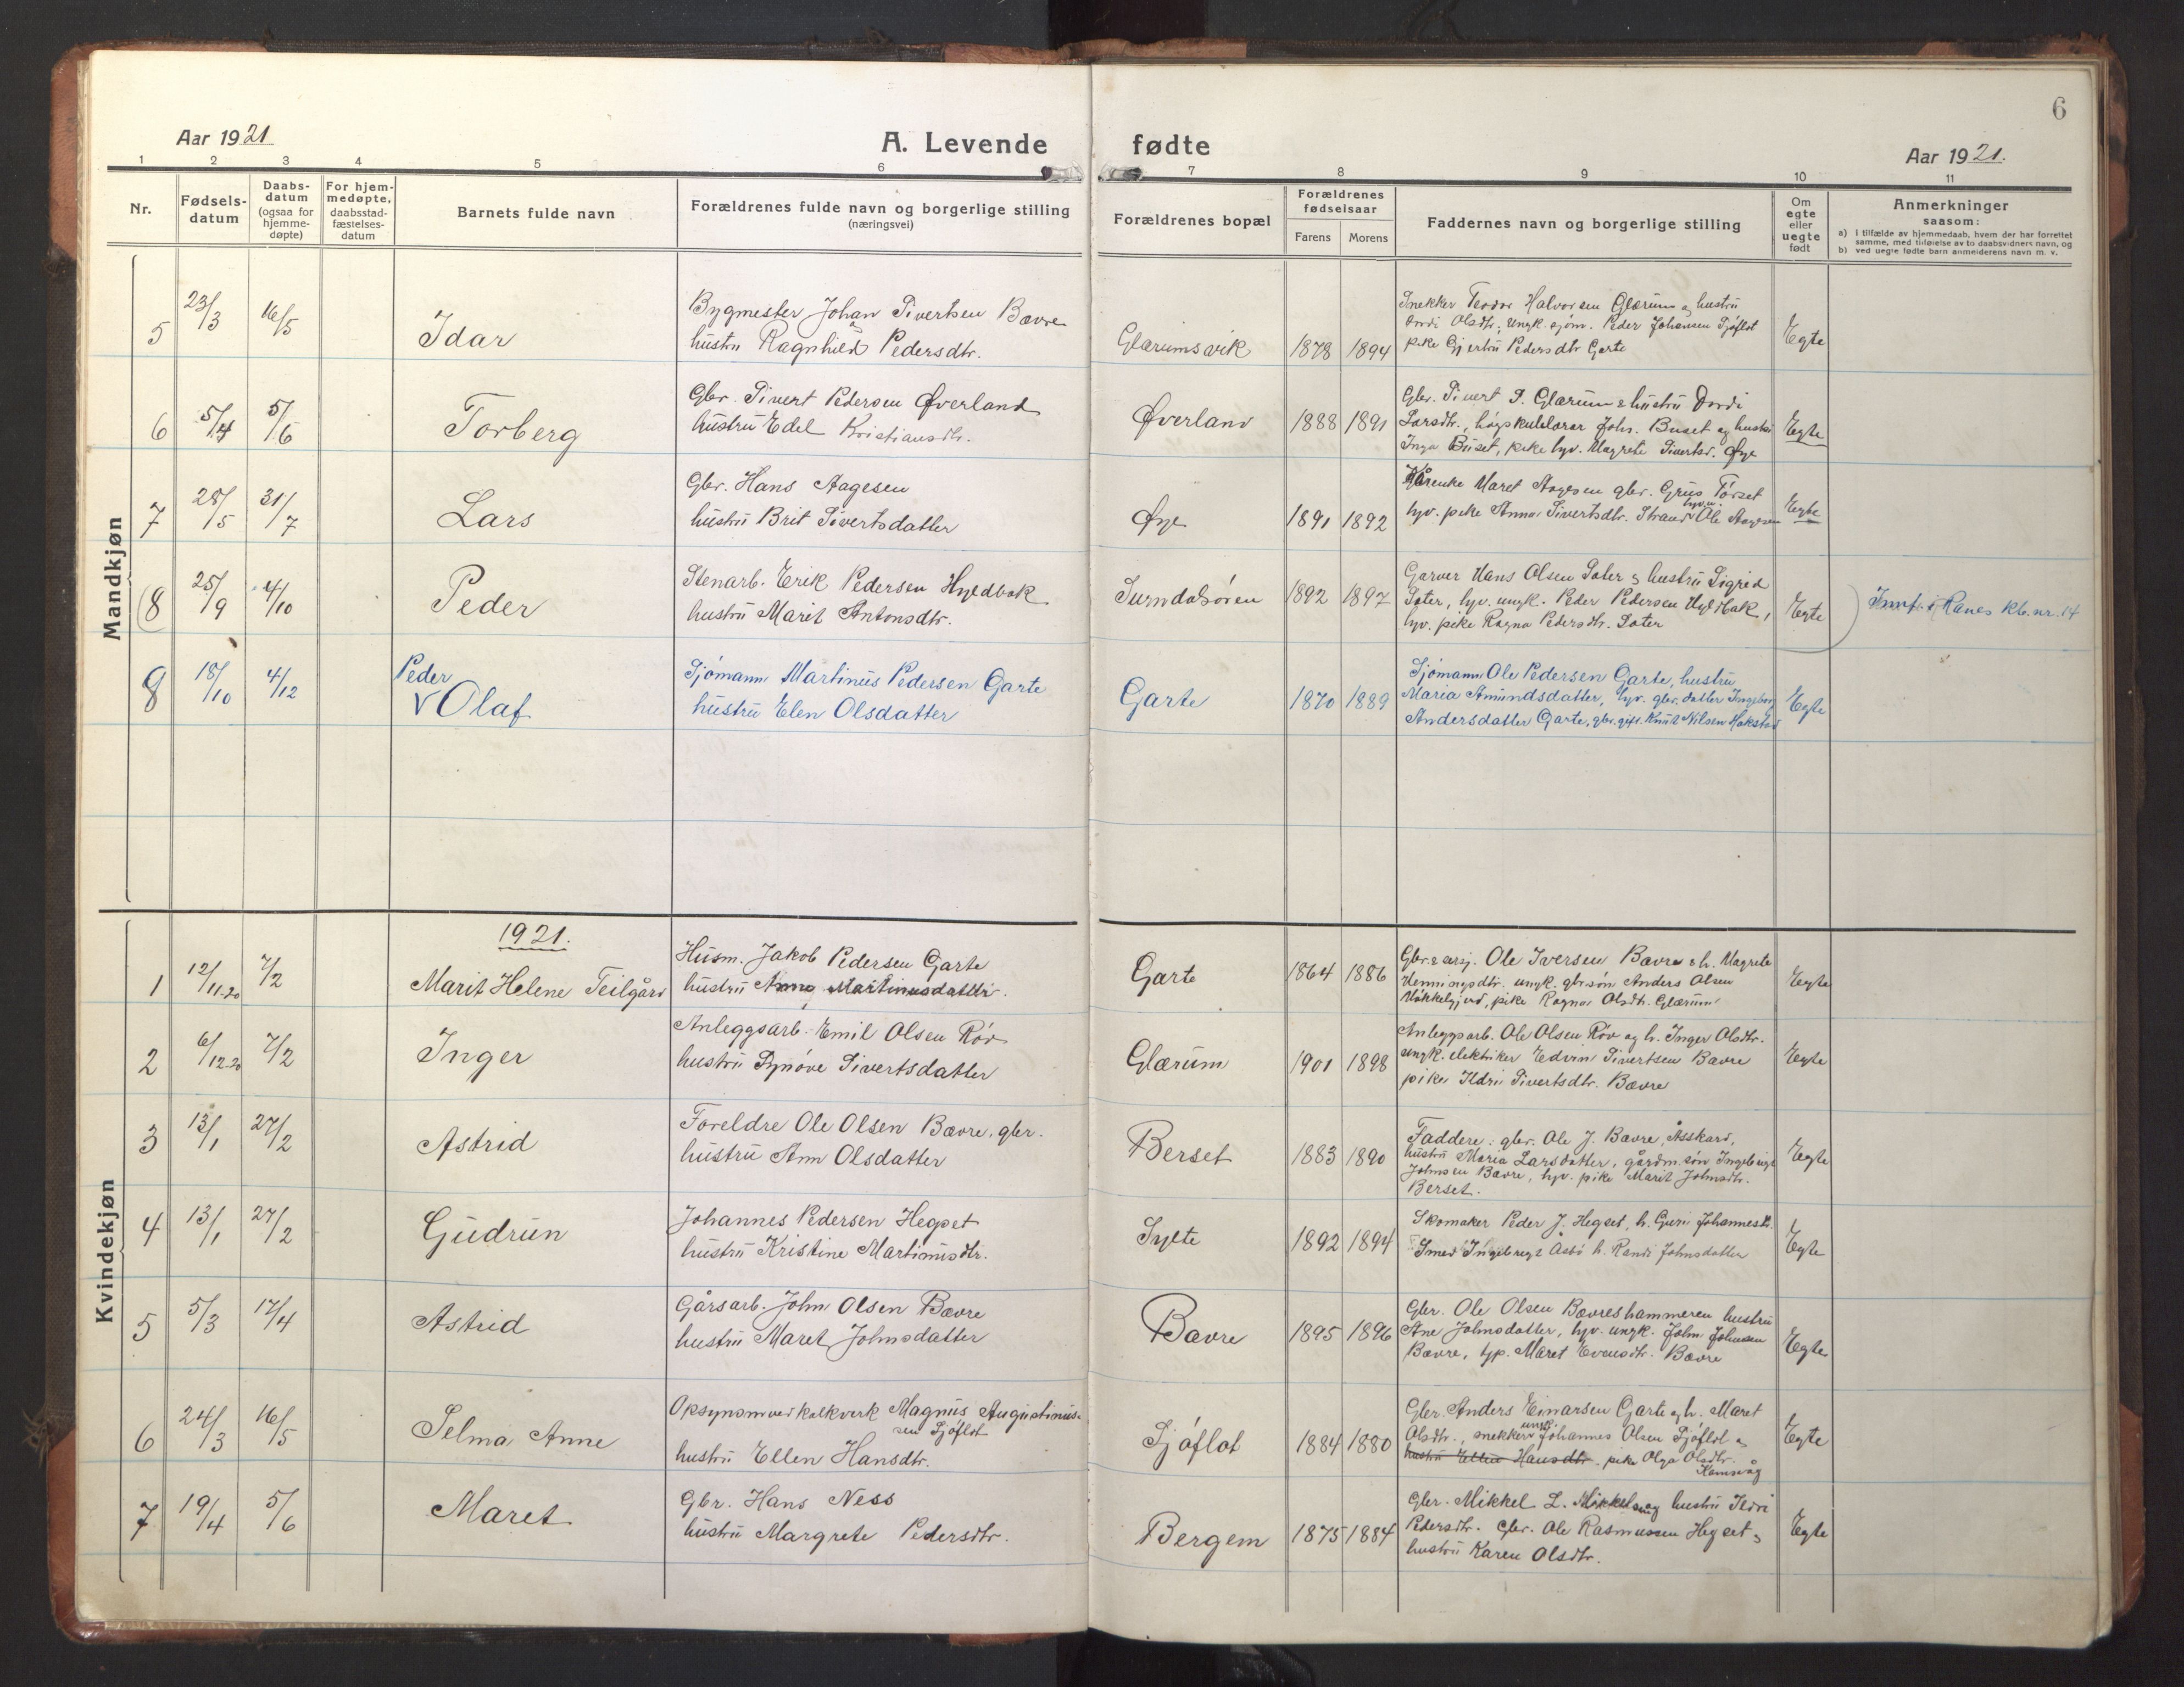 6
Aar 1921
A. Levende fødte
Aar 1921.
1 2 3 4 5 6 7 8 9 10 11
Nr.
Fødsels-
datum
Daabs-
datum
(ogsaa for
hjemme-
døpte)
For hjem-
medøpte,
daabsstad-
fæstelses-
datum
Barnets fulde navn
Forældrenes fulde navn og borgerlige stilling
(næringsvei)
Forældrenes bopæl
Forældrenes
fødselsaar
Farens Morens
Faddernes navn og borgerlige stilling
Om
egte
eller
uegte
født
Anmerkninger
saasom:
a) i tilfælde av hjemmedaab, hvem der har forrettet
samme, med tilføielse av to daabsvidners navn, og
b) ved uegte fødte barn anmelderens navn m. v.
Mandkjøn
5 23/3 16/5 Idar
Bygmester Johan Sivertsen Bævre
hustru Ragnhild Pedersdtr.
Glærumsvik 1878 1894
Snekker Teodor Halvorsen Glærum og hustru
Dordi Olsdtr., ungk. sjøm. Peder Johansen Sjøflot
pike Gjertru Pedersdtr Garte
Egte
6 5/4 5/6 Torberg
Gbr. Sivert Pedersen Øverland
hustru Edel Kristiansdtr.
Øverland 1888 1891
Gbr. Sivert S. Glærum & hustru Dordi
Larsdtr., høgskulelærar John. Buset og hustru
Inga Buset, pike hyv. Magrete Sivertsd. Øye
Egte
7 28/5 31/7 Lars
Gbr. Hans Aagesen
hustru Brit Sivertsdatter
Øye 1891 1892
Maret Aagesen gbr. Torset
hyv. pike Anna Sivertsdtr. Strand Ole Aagesen
Egte
8 25/9 4/10 Peder
Stenarb. Erik Pedersen Hyldbak
hustru Marit Antonsdtr.
Surndalsøren 1892 1897
Garver Hans Olsen Sæter & hustru Sigrid
Sæter, hyv. ungk. Peder Pedersen Hyldbak,
hyv. pike Ragna Pedersdtr. Sæter
Egte
Innf. i Ranes kb. nr. 14
8 18/10 4/12 Peder
V Olaf
Sjømann Martinus Pedersen Garte
hustru Elen Olsdatter
Garte 1870 1889
Sjømann Ole Pedersen Garte, hustru
Maria Amundsdatter, hyv. gbr. datter Ingeborg
Andersdatter Garte, gbr. gift. Knut Nilsen Hakstad
Egte
Kvindekjøn
1921.
1 12/11-20 7/2 Marit Helene Teilgård
Husm. Jakob Pedersen Garte
hustru Anne Martinusdatter.
Garte 1864 1886
Gbr. & sersj. Ole Iversen Bævre & h. Magrete
Henningsdtr. ungk. gbrsøn Anders Olsen
Møkkelgjerd, pike Ragna Olsdtr. Glærum
Egte
2 6/12-20 7/2 Inger
Anleggsarb. Emil Olsen Røv
hustru Synøve Sivertsdatter
Glærum 1901 1898
Anleggsarb. Ole Olsen Røv og h. Inger Olsdtr.
ungk. elektriker Edvin Sivertsen Bævre
pike Ildri Sivertsdtr. Bævre
Egte
3 13/1 27/2 Astrid
Foreldre Ole Olsen Bævre, gbr.
hustru Ann Olsdatter
Berset 1883 1890
Faddere: gbr. Ole J. Bævre, Åsskard,
hustru Maria Larsdatter, gårdm. søn Ingebrigt
Johnsen Bævre, hyv. pike Marit Johnsdtr.
Berset.
Egte
4 13/1 27/2 Gudrun
Johannes Pedersen Hegset
hustru Kristine Martinusdtr.
Sylte 1892 1894
Skomaker Peder J. Hegset, h. Guri Johannesd.
Smed Ingebrigt Åsbö h. Randi Johnsdatter
Egte
5 5/3 17/4 Astrid
Gårsarb. John Olsen Bævre
hustru Maret Johnsdatter
Bævre 1895 1896
Gbr. Ole Olsen Bævreshammeren hustru
Ane Johnsdatter, hyv. ungk. John Johnsen
Bævre, hyp. Maret Evensdtr. Bævre
Egte
6 24/3 16/5 Selma Anne
Opsynsm ved kalkverk Magnus Augustinus-
sen Sjøflot
hustru Ellen Hansdtr.
Sjøflot 1884 1880
Gbr. Anders Einarsen Garte og h. Maret
Olsdtr., snekker ungk. Johannes Olsen Sjøflot og
hustru Ellen Hansdtr. pike Olga Olsdtr.
Hamsvåg
Egte
7 19/4 5/6 Maret
Gbr. Hans Ness
hustru Margrete Pedersdtr.
Bergem 1875 1884
Gbr. Mikkel L. Møkkelsvig hustru Ildri
Pedersdtr. Gbr. Ole Rasmussen Hegset og
hustru Karen Olsdtr.
Egte